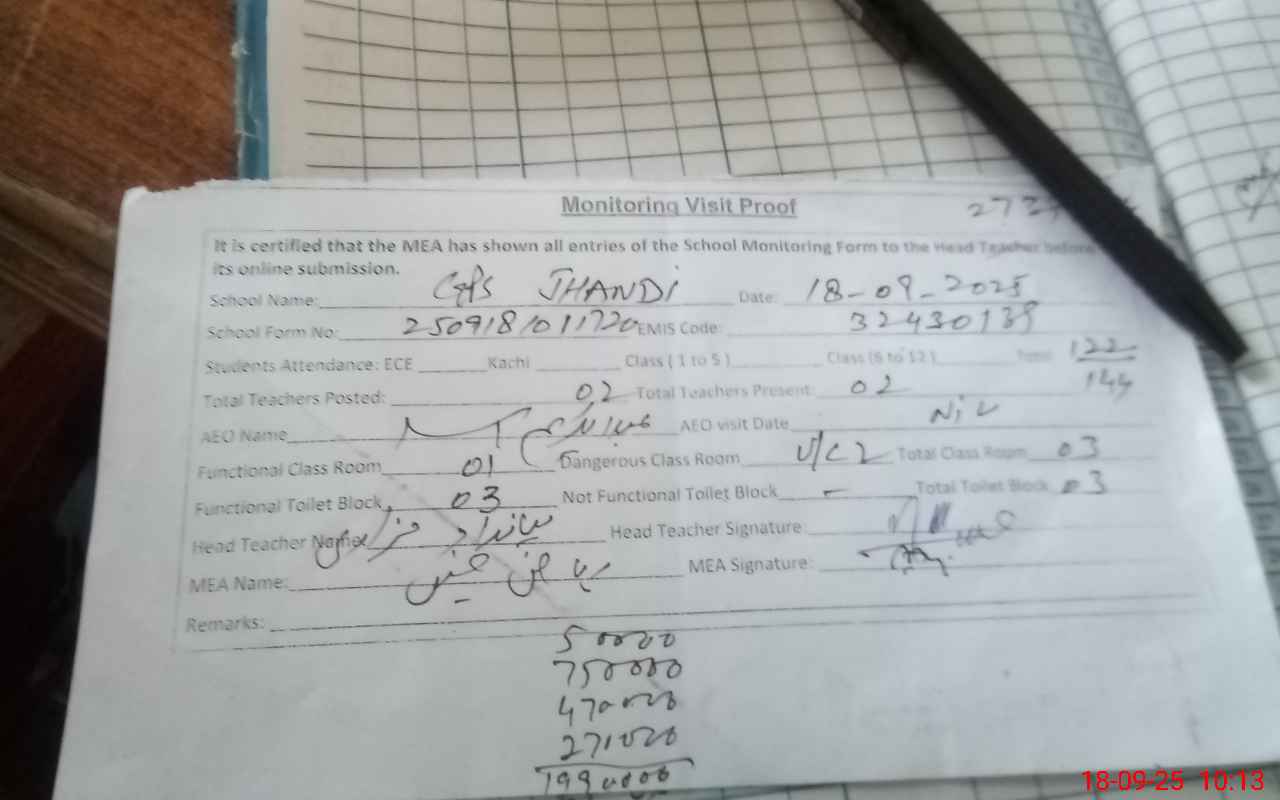 Monitoring Visit Proof
It is certified that the MEA has shown all entries of the School Monitoring Form to the Head Teacher before
its online submission.
School Name: GPS JHANDI Date: 18-09-2025
School Form No: 2509181011720 EMIS Code: 32430139
Students Attendance: ECE Kachi Class ( 1 to 5 ) Class (6 to 12 ) Total 122
144
Total Teachers Posted: 02 Total Teachers Present: 02
AEO Name AEO visit Date Nil
Functional Class Room 01 Dangerous Class Room U/C 2 Total Class Room 03
Functional Toilet Block 03 Not Functional Toilet Block - Total Toilet Block 03
Head Teacher Name Head Teacher Signature:
MEA Name: MEA Signature:
Remarks:
50000
750000
470000
271000
18-09-25 10:13